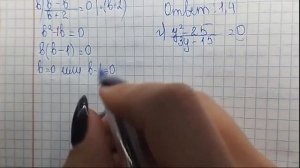 b) b² - b / b + 2 = 0 | · (b+2)
b² - b = 0
b(b - 1) = 0
b = 0 или b - 1 = 0
Ответ: 1,4
г) y² - 25 / 3y - 15 = 0